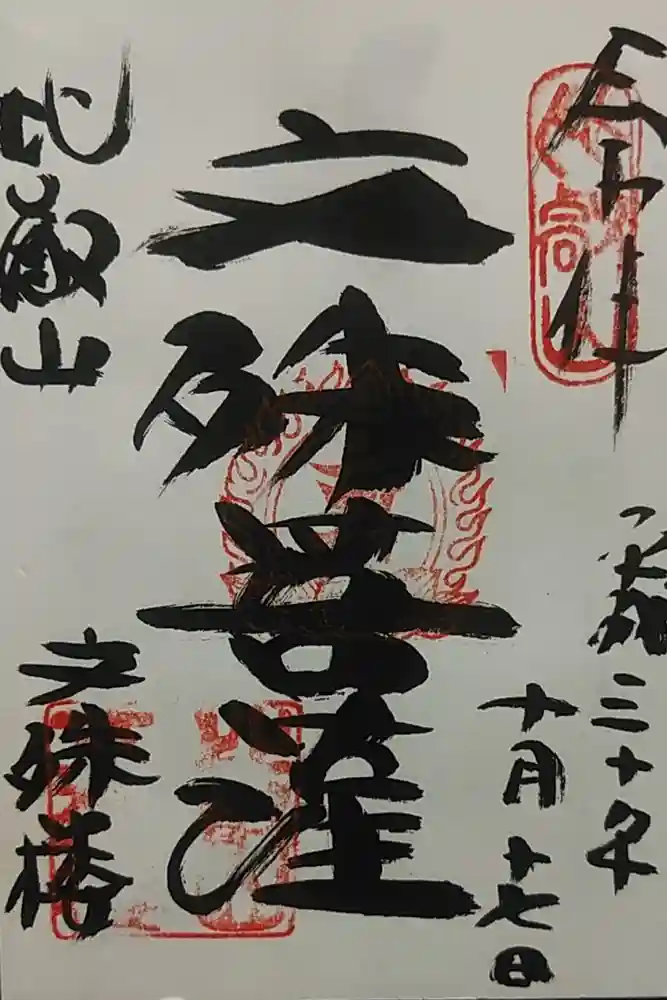 奉拝
平成三十年
十月十七日
文殊菩薩
比叡山
文殊楼